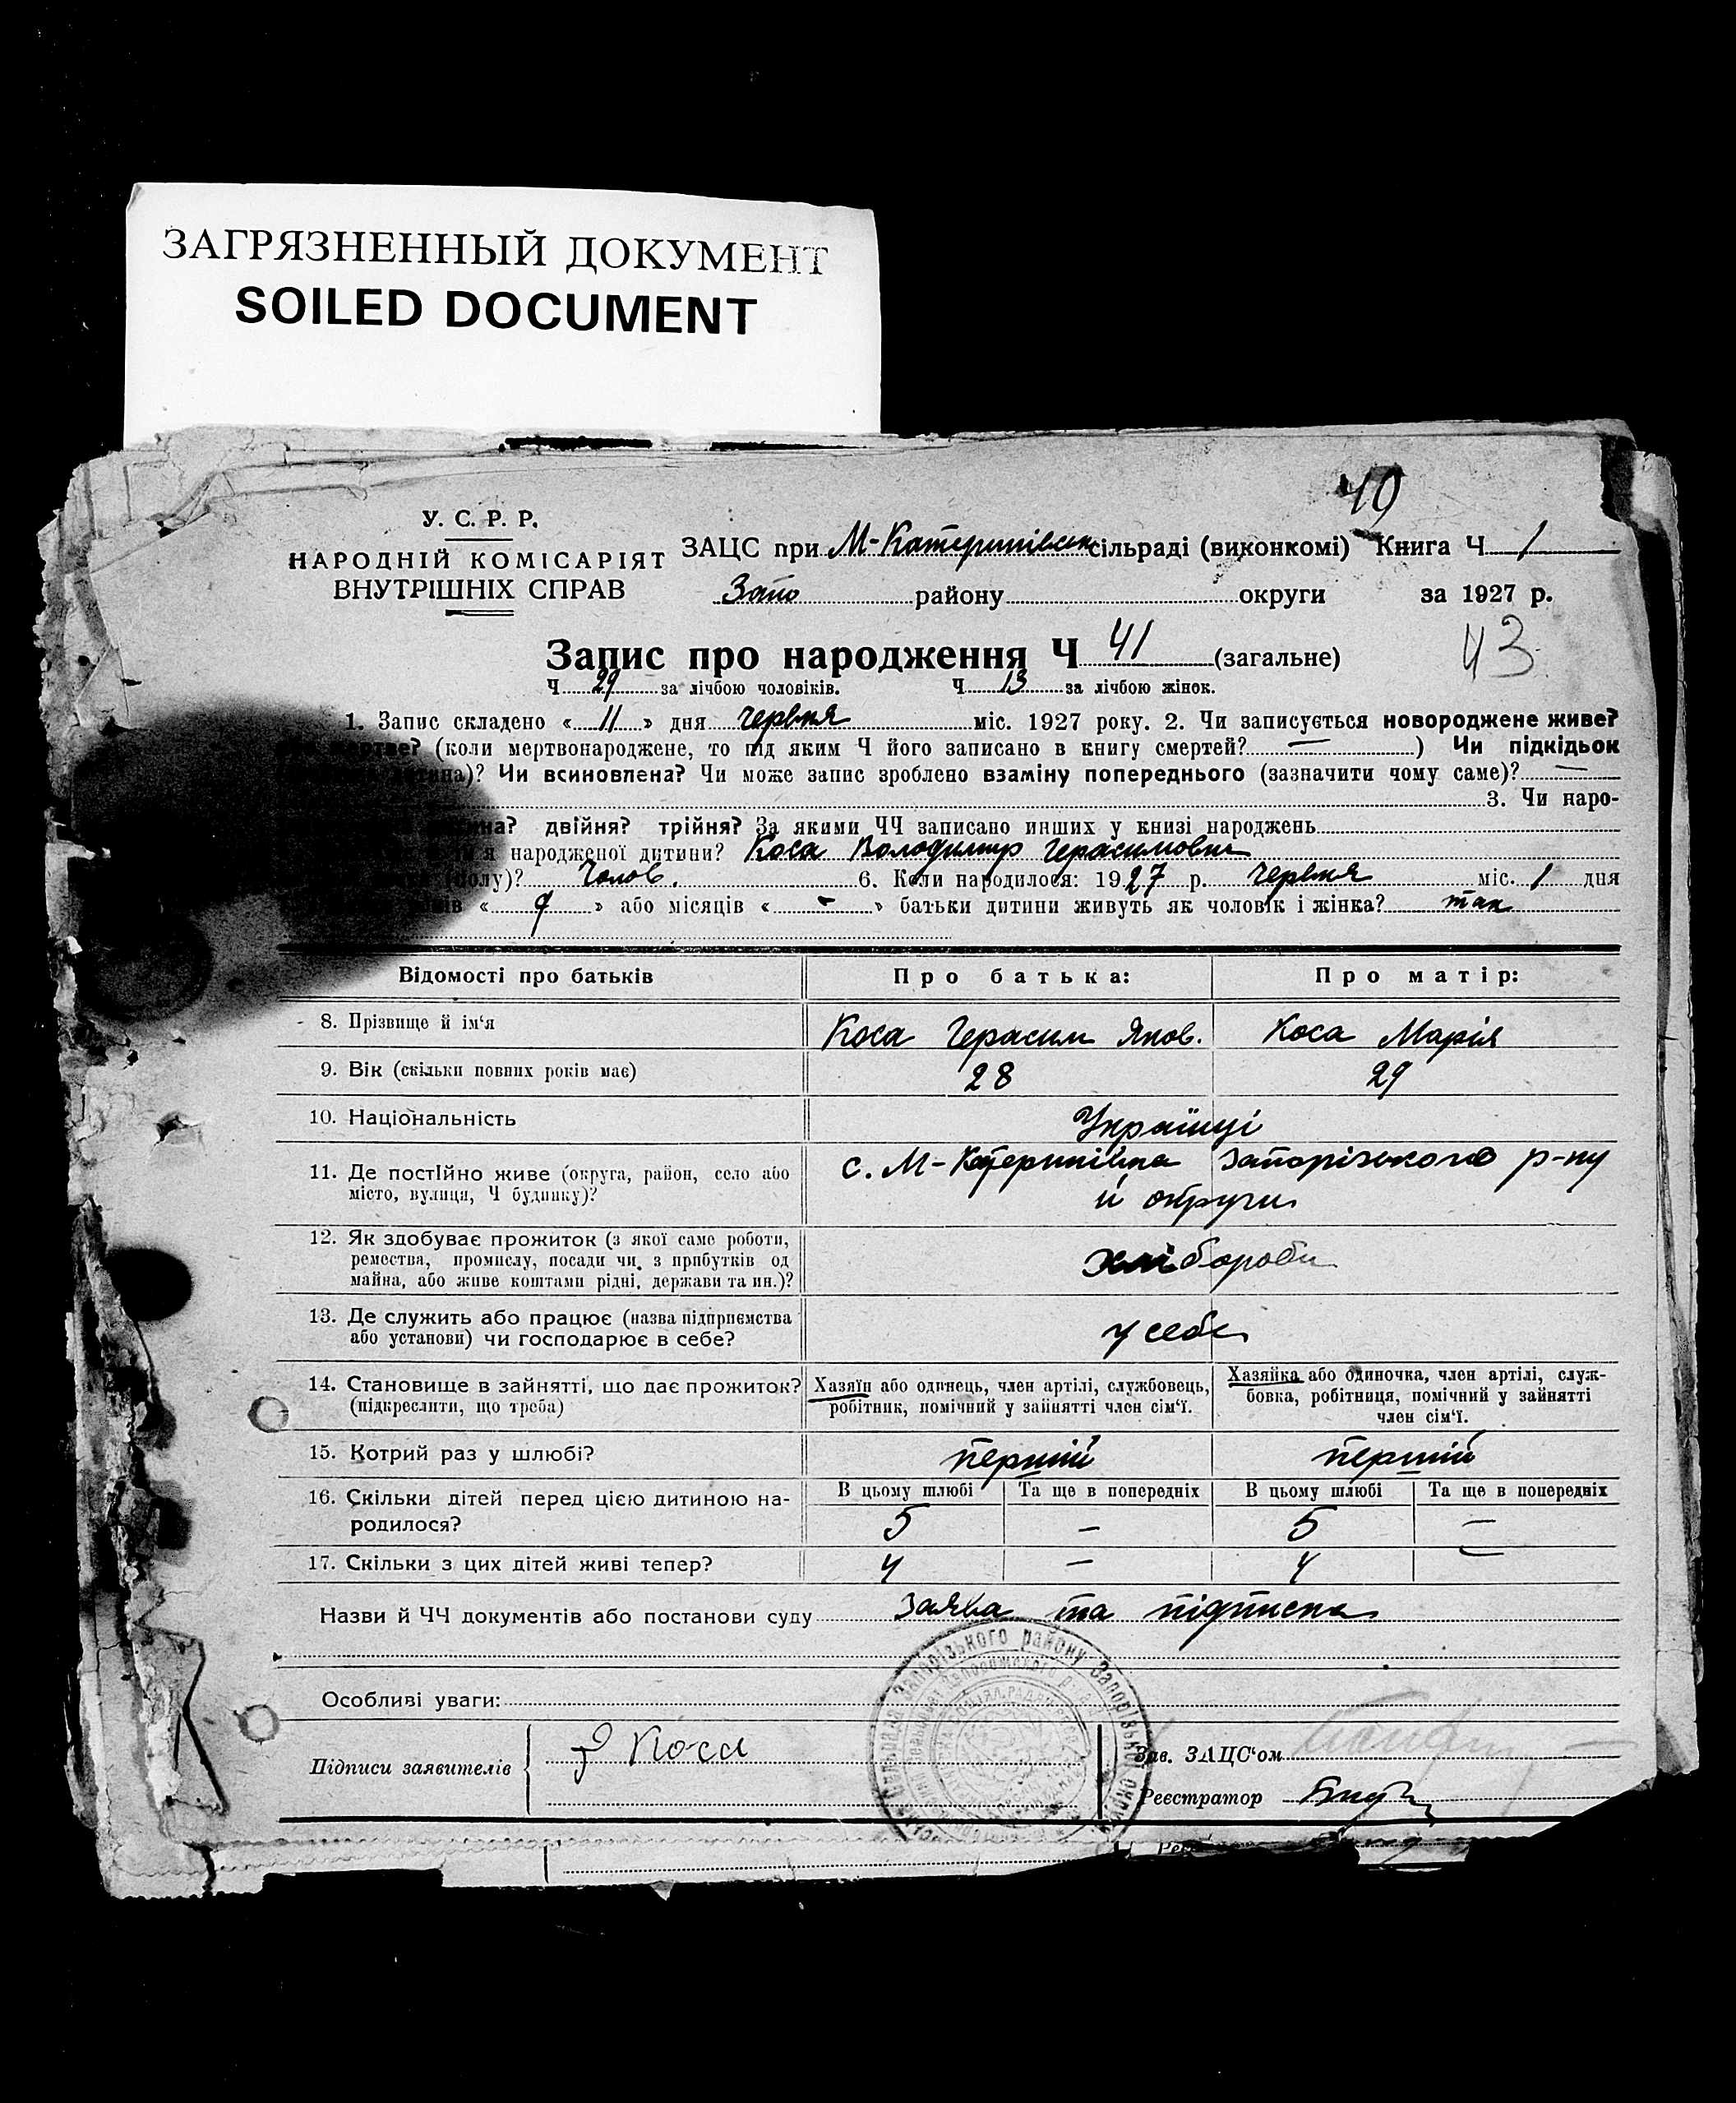 ЗАГРЯЗНЕННЫЙ ДОКУМЕНТ
SOILED DOCUMENT
49
У. С. Р. Р.
НАРОДНІЙ КОМІСАРІЯТ
ВНУТРІШНІХ СПРАВ
ЗАЦС при М-Катеринівськ сільраді (виконкомі) Книга Ч 1
Запо району округи за 1927 р.
Запис про народження Ч 41 (загальне)
43
Ч 29 за лічбою чоловіків. Ч 13 за лічбою жінок.
1. Запис складено « 11 » дня червня міс. 1927 року. 2. Чи записується новороджене живе?
мертве? (коли мертвонароджене, то під яким Ч його записано в книгу смертей? — ) Чи підкідьок
дитина)? Чи всиновлена? Чи може запис зроблено взаміну попереднього (зазначити чому саме)? —
3. Чи наро-
двійня? трійня? За якими ЧЧ записано инших у книзі народжень
народженої дитини? Коса Володимир Герасимович
(полу)? Чолов. 6. Коли народилося: 1927 р. червня міс. 1 дня
« 9 » або місяців « - » батьки дитини живуть як чоловік і жінка? так
Відомості про батьків Про батька: Про матір:
8. Прізвище й ім‘я Коса Герасим Яков. Коса Марія
9. Вік (скільки повних років має) 28 29
10. Національність Українці
11. Де постійно живе (округа, район, село або
місто, вулиця, Ч будинку)? с. М-Катеринівка Запорізького р-ну
й округи
12. Як здобуває прожиток (з якої саме роботи,
ремества, промислу, посади чи, з прибутків од
майна, або живе коштами рідні, держави та ин.)? хлібороби
13. Де служить або працює (назва підприємства
або установи) чи господарює в себе? у себе
14. Становище в зайнятті, що дає прожиток?
(підкреслити, що треба)
Хазяїн або одинець, член артілі, службовець,
робітник, помічний у зайнятті член сім‘ї.
Хазяйка або одиночка, член артілі, служ-
бовка, робітниця, помічний у зайнятті
член сім‘ї.
15. Котрий раз у шлюбі? перший перший
16. Скільки дітей перед цією дитиною на-
родилося?
В цьому шлюбі Та ще в попередніх В цьому шлюбі Та ще в попередніх
5 — 5 —
17. Скільки з цих дітей живі тепер? 4 — 4 —
Назви й ЧЧ документів або постанови суду Заява та підписка
Особливі уваги:
Запорізького району Запорізької
Підписи заявителів Коса
Зав. ЗАЦС‘ом
Реєстратор